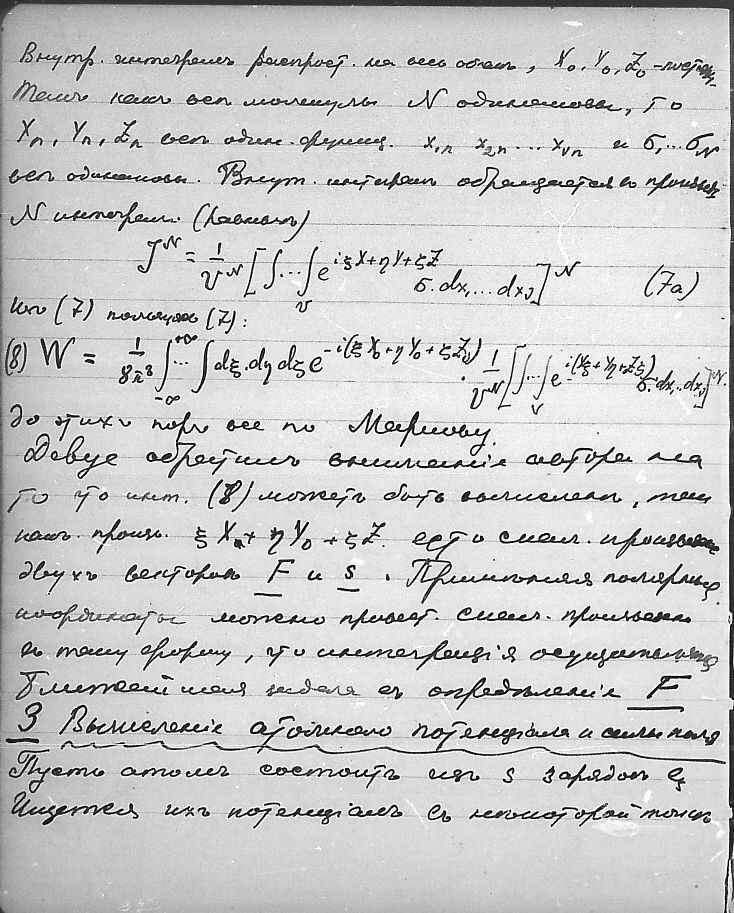 Внутр. интеграль распрост. на весь объемъ, X₀, Y₀, Z₀ –
Такъ какъ всѣ молекулы N одинаковы, то
Xₙ, Yₙ, Zₙ всѣ один. функц. x₁ₙ x₂ₙ ... xᵥₙ и σ₁...σ_N
всѣ одинаковы. Внут. интегралъ обращается въ произвед.
N интеграл. (равныхъ)
J^N = 1/V^N [∫...∫_V e^{iξX+ηY+ζZ} σ. dx₁...dxᵥ]^N (7a)
Изъ (7) получимъ (7):
(8) W = 1/8π³ ∫_{-∞}^{+∞}...∫ dξ.dη dζ e^{-i(ξX₀+ηY₀+ζZ₀)} . 1/V^N [∫...∫_V e^{i(Xξ+Yη+Zζ)} σ. dx₁..dxᵥ]^N.
До этихъ поръ все по Маркову.
Дебуе обратилъ вниманіе автора на
то что инт. (8) можетъ быть вычисленъ, такъ
какъ произв. ξX₀ + ηY₀ + ζZ. есть скал. произведеніе
двухъ векторовъ F и s. Примѣняя полярныя
координаты можно привест. скал. произведен.
къ такой форму, что интеграція осуществляется
Ближайшая задача есть опредѣленіе F
3 Вычисленіе атомнаго потенціала и силы поля
Пусть атомъ состоитъ изъ s зарядовъ eₛ
Ищется ихъ потенціалъ въ некоторой точкѣ